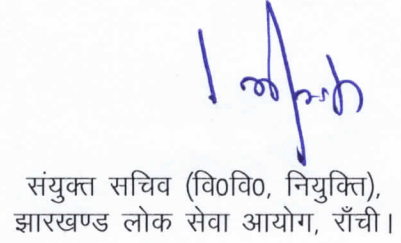 संयुक्त सचिव (वि0वि0, नियुक्ति),
झारखण्ड लोक सेवा आयोग, राँची।